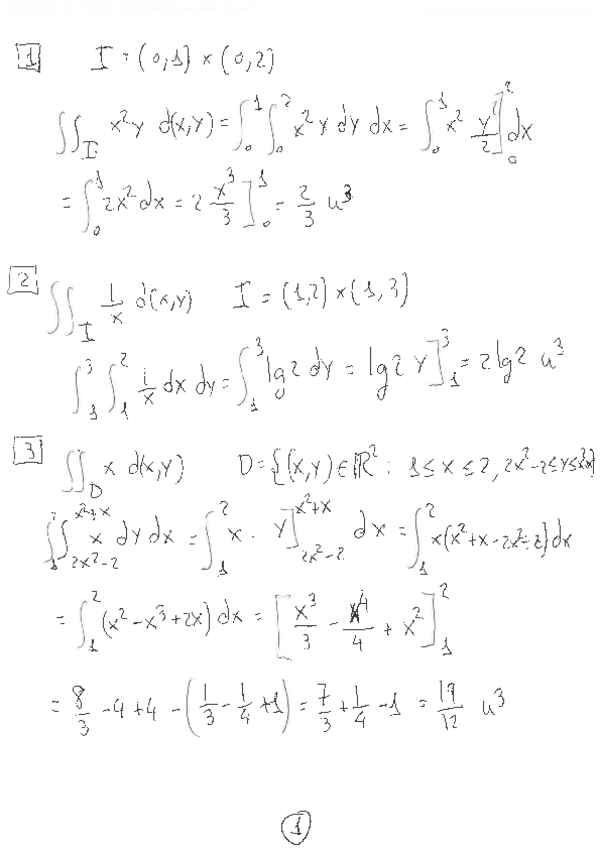 1 I = (0,1) × (0,2)
∬_I x²y d(x,y) = ∫₀¹ ∫₀² x²y dy dx = ∫₀¹ x² y²/2 ]₀² dx
= ∫₀¹ 2x² dx = 2 x³/3 ]₀¹ = 2/3 u³
2 ∬_I 1/x d(x,y) I = (1,2) × (1,3)
∫₁³ ∫₁² 1/x dx dy = ∫₁³ lg2 dy = lg2 y ]₁³ = 2 lg2 u³
3 ∬_D x d(x,y) D = {(x,y) ∈ ℝ² : 1 ≤ x ≤ 2, 2x²-2 ≤ y ≤ x²+x}
∫₁² ∫_{2x²-2}^{x²+x} x dy dx = ∫₁² x · y ]_{2x²-2}^{x²+x} dx = ∫₁² x(x²+x-2x²+2) dx
= ∫₁² (x²-x³+2x) dx = [ x³/3 - x⁴/4 + x² ]₁²
= 8/3 - 4 + 4 - ( 1/3 - 1/4 + 1 ) = 7/3 + 1/4 - 1 = 19/12 u³
1